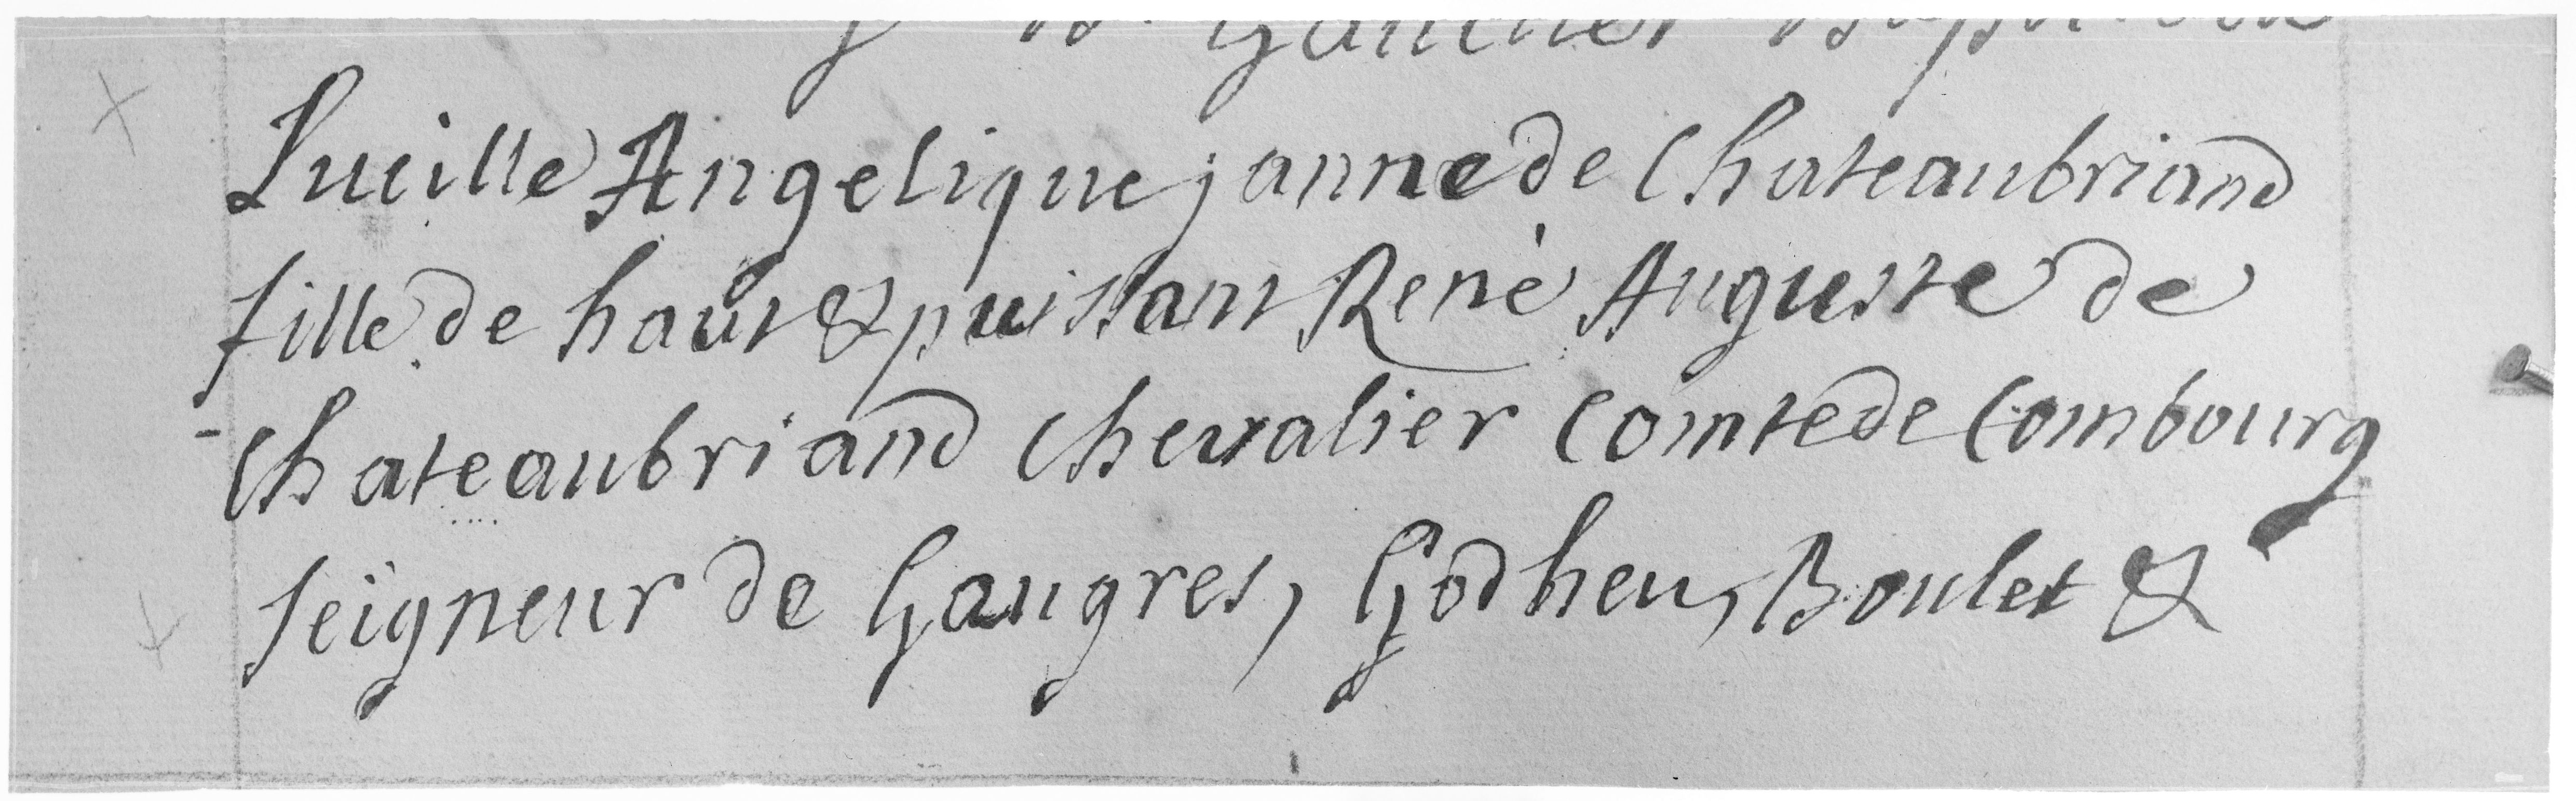 Gautier
Lucille Angelique janne de Chateaubriand
fille de haut & puissant Renè Auguste de
Chateaubriand Chevalier Comte de Combourg
seïgneur de Gaugres, Godheu, Boulet &